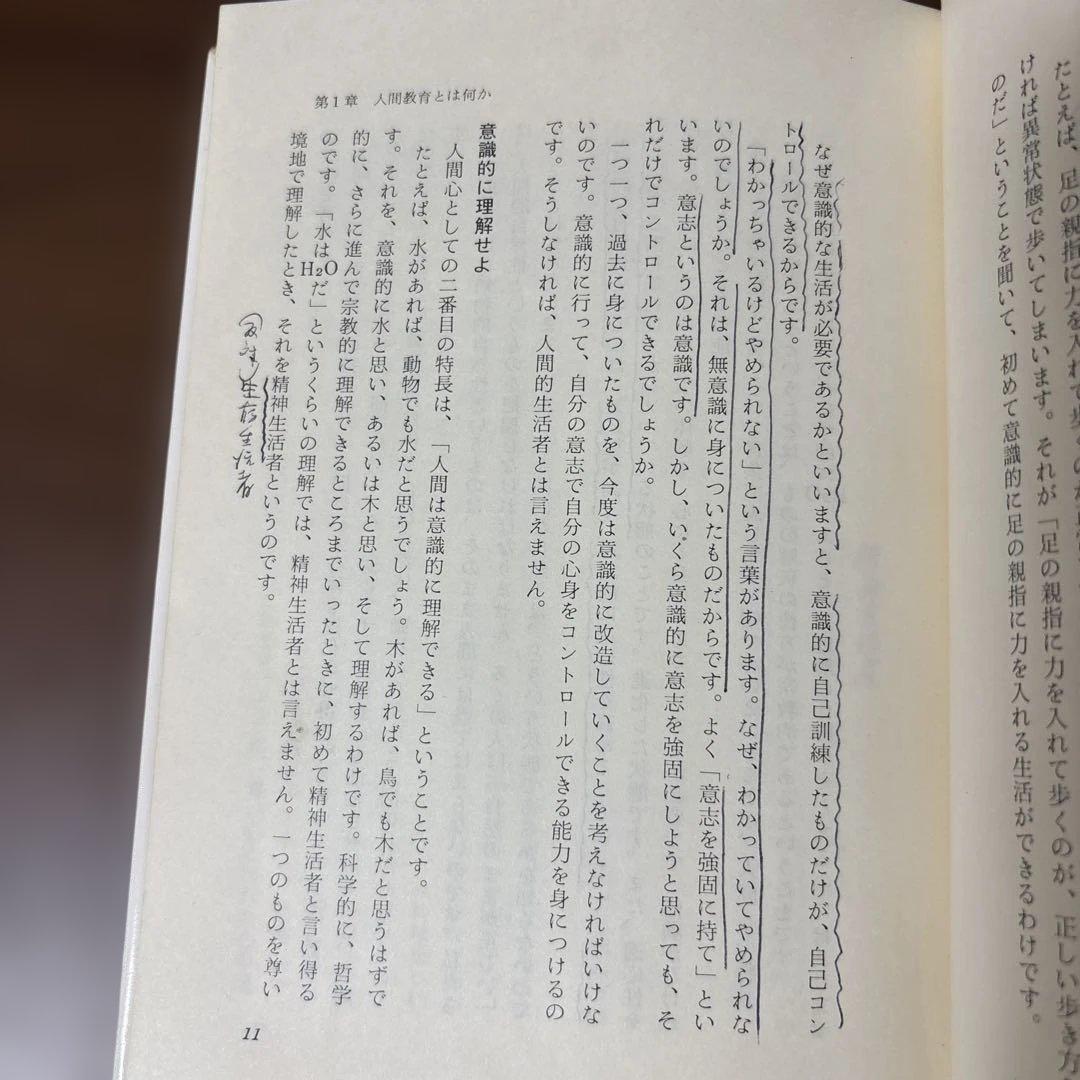 たとえば、足の親指に力を入れて歩
ければ異常状態で歩いてしまいます。それが「足の親指に力を入れて歩くのが、正しい歩き方
のだ」ということを聞いて、初めて意識的に足の親指に力を入れる生活ができるわけです。
第1章 人間教育とは何か
なぜ意識的な生活が必要であるかといいますと、意識的に自己訓練したものだけが、自己コン
トロールできるからです。
「わかっちゃいるけどやめられない」という言葉があります。なぜ、わかっていてやめられな
いのでしょうか。それは、無意識に身についたものだからです。よく「意志を強固に持て」とい
います。意志というのは意識です。しかし、いくら意識的に意志を強固にしようと思っても、そ
れだけでコントロールできるでしょうか。
一つ一つ、過去に身についたものを、今度は意識的に改造していくことを考えなければいけな
いのです。意識的に行って、自分の意志で自分の心身をコントロールできる能力を身につけるの
です。そうしなければ、人間的生活者とは言えません。
意識的に理解せよ
人間心としての二番目の特長は、「人間は意識的に理解できる」ということです。
たとえば、水があれば、動物でも水だと思うでしょう。木があれば、鳥でも木だと思うはずで
す。それを、意識的に水と思い、あるいは木と思い、そして理解するわけです。科学的に、哲学
的に、さらに進んで宗教的に理解できるところまでいったときに、初めて精神生活者と言い得る
のです。「水はH₂Oだ」というくらいの理解では、精神生活者とは言えません。一つのものを尊い
境地で理解したとき、それを精神生活者というのです。
生存生活者
11